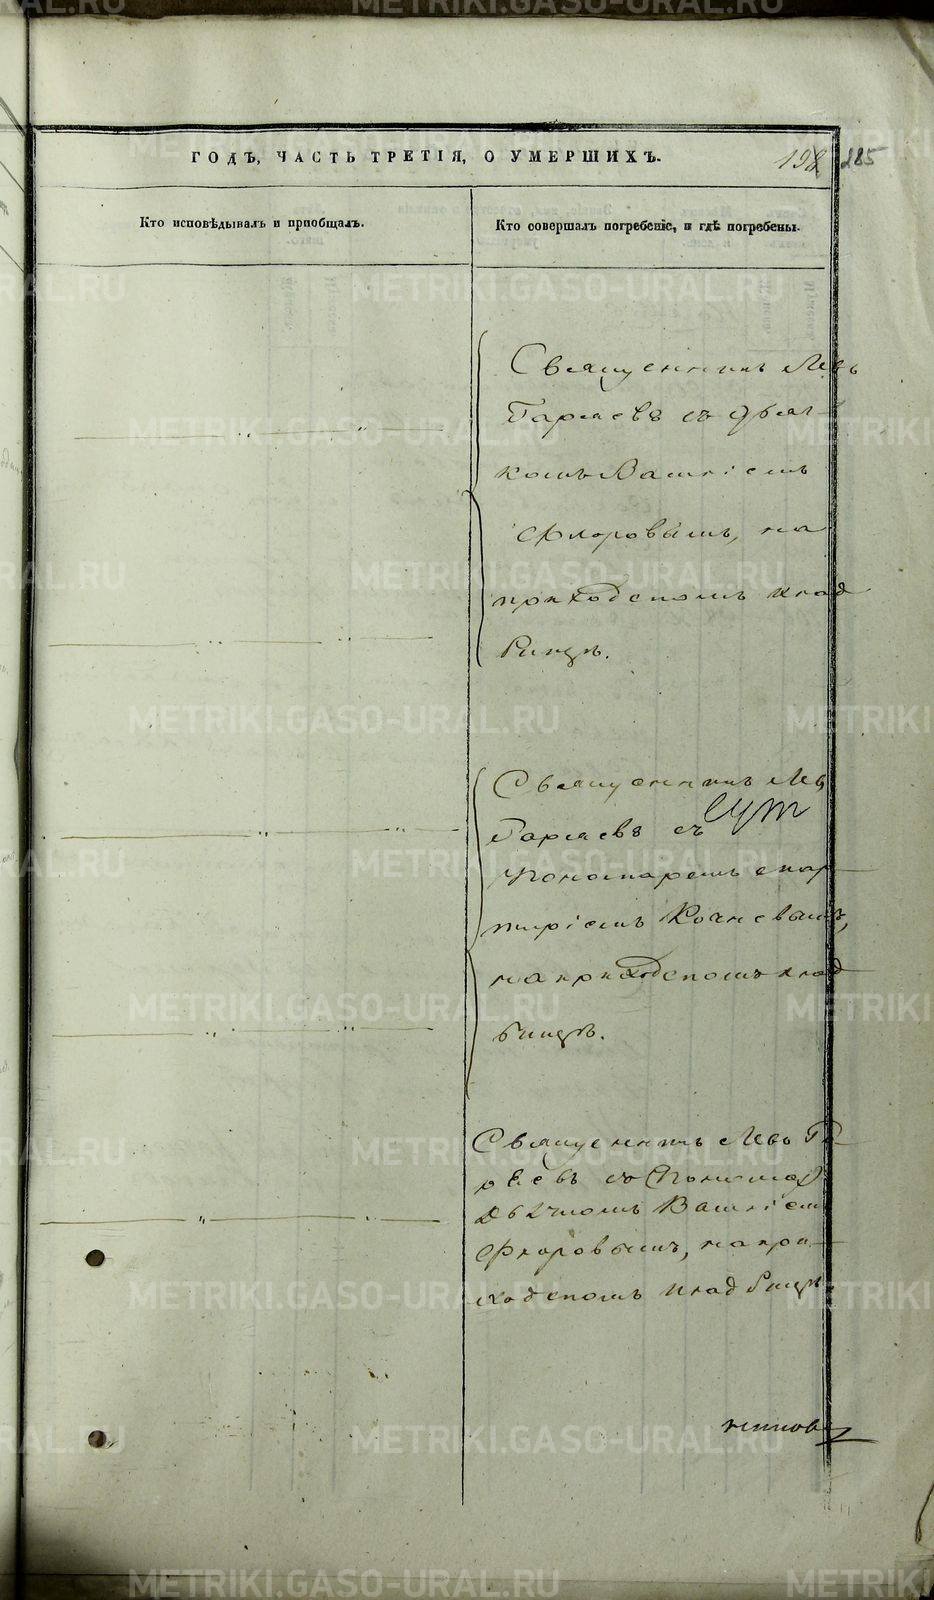 ГОДЪ, ЧАСТЬ ТРЕТІЯ, О УМЕРШИХЪ.
198 285
Кто исповѣдывалъ и пріобщалъ.
Кто совершалъ погребеніе, и гдѣ погребены.
Священникъ Левъ
Гаряевъ съ дьяч-
комъ Василіемъ
Флоровымъ, на
приходскомъ клад
бищѣ.
Священникъ Левъ
Гаряевъ съ
Пономаремъ
Кочневымъ,
на приходскомъ клад
бищѣ.
Священникъ Левъ Га
ряевъ съ
Василіем
Флоровымъ, на при-
ходскомъ кладбищѣ.
METRIKI.GASO-URAL.RU